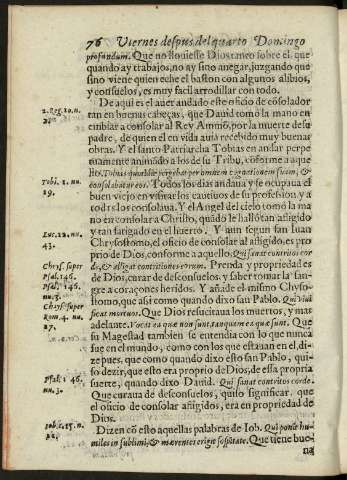 76 Viernes despus del quarto Domingo
profundum. Que no lluuiesse Dios tanto sobre el que
quando ay trabajos, no ay sino anegar, juzgando que
sino viene quien eche el baston con algunos alibios,
y consuelos, es muy facil arrodillar con todo.
De aqui es el auer andado este oficio de cōsolador
2. Reg. 10. n.
tan en buenas cabeças, que Dauid tomò la mano en
embiar a consolar al Rey Ammō, por la muerte de su
padre, de quien el en vida auia recebido muy buenas
obras. Y el santo Patriarcha Tobias en andar perpe
tuamente animādo a los de su Tribu, cōforme a aque
llo. Tobias quotidie pergebat per omnem cognationem suam, &
Tobi. 1. nu.
19.
consolabatur eos. Todos los dias andaua y se ocupaua el
buen viejo en visitar los cautiuos de su profession, y a
todos los consolaua. Y el Angel del cielo tomò la ma
no en consolar a Christo, quādo le hallò tan afligido
Luc. 22. nu.
43.
y tan fatigado en el huerto. Y aun segun san Iuan
Chrysostomo, el oficio de consolar al afligido, es pro
prio de Dios, conforme a aquello. Qui sanat contritos cor
Chrys. super
Psal. 146.
de, & alligat contritiones eorum. Prenda y propriedad es
de Dios, curar de desconsuelos, y saber tomar la san-
Psal. 146.
nu. 3.
gre a coraçones heridos. Y añade el mismo Chryso-
stomo, que assi como quando dixo san Pablo. Qui viui
Chrys. super
Rom. 4. nu.
17.
ficat mortuos. Que Dios resucitaua los muertos, y mas
adelante. Vocat ea quæ non sunt, tanquam ea quæ sunt. Que
su Magestad tambien se entendia con lo que nunca
fue en el mundo, como con los que estauan en el, di-
ze pues, que como quando dixo esto san Pablo, qui-
so dezir, que esto era proprio de Dios, de essa propria
Psal. 146.
nu. 3.
suerte, quando dixo Dauid. Qui sanat contritos corde.
Que curaua de desconsuelos, quiso significar, que
el oficio de consolar afligidos, era en propriedad de
Dios.
Iob. c. 15. n.
Dizen cō esto aquellas palabras de Iob. Qui ponit hu-
miles in sublimi, & mærentes erigit sospitate. Que tiene bue-
na